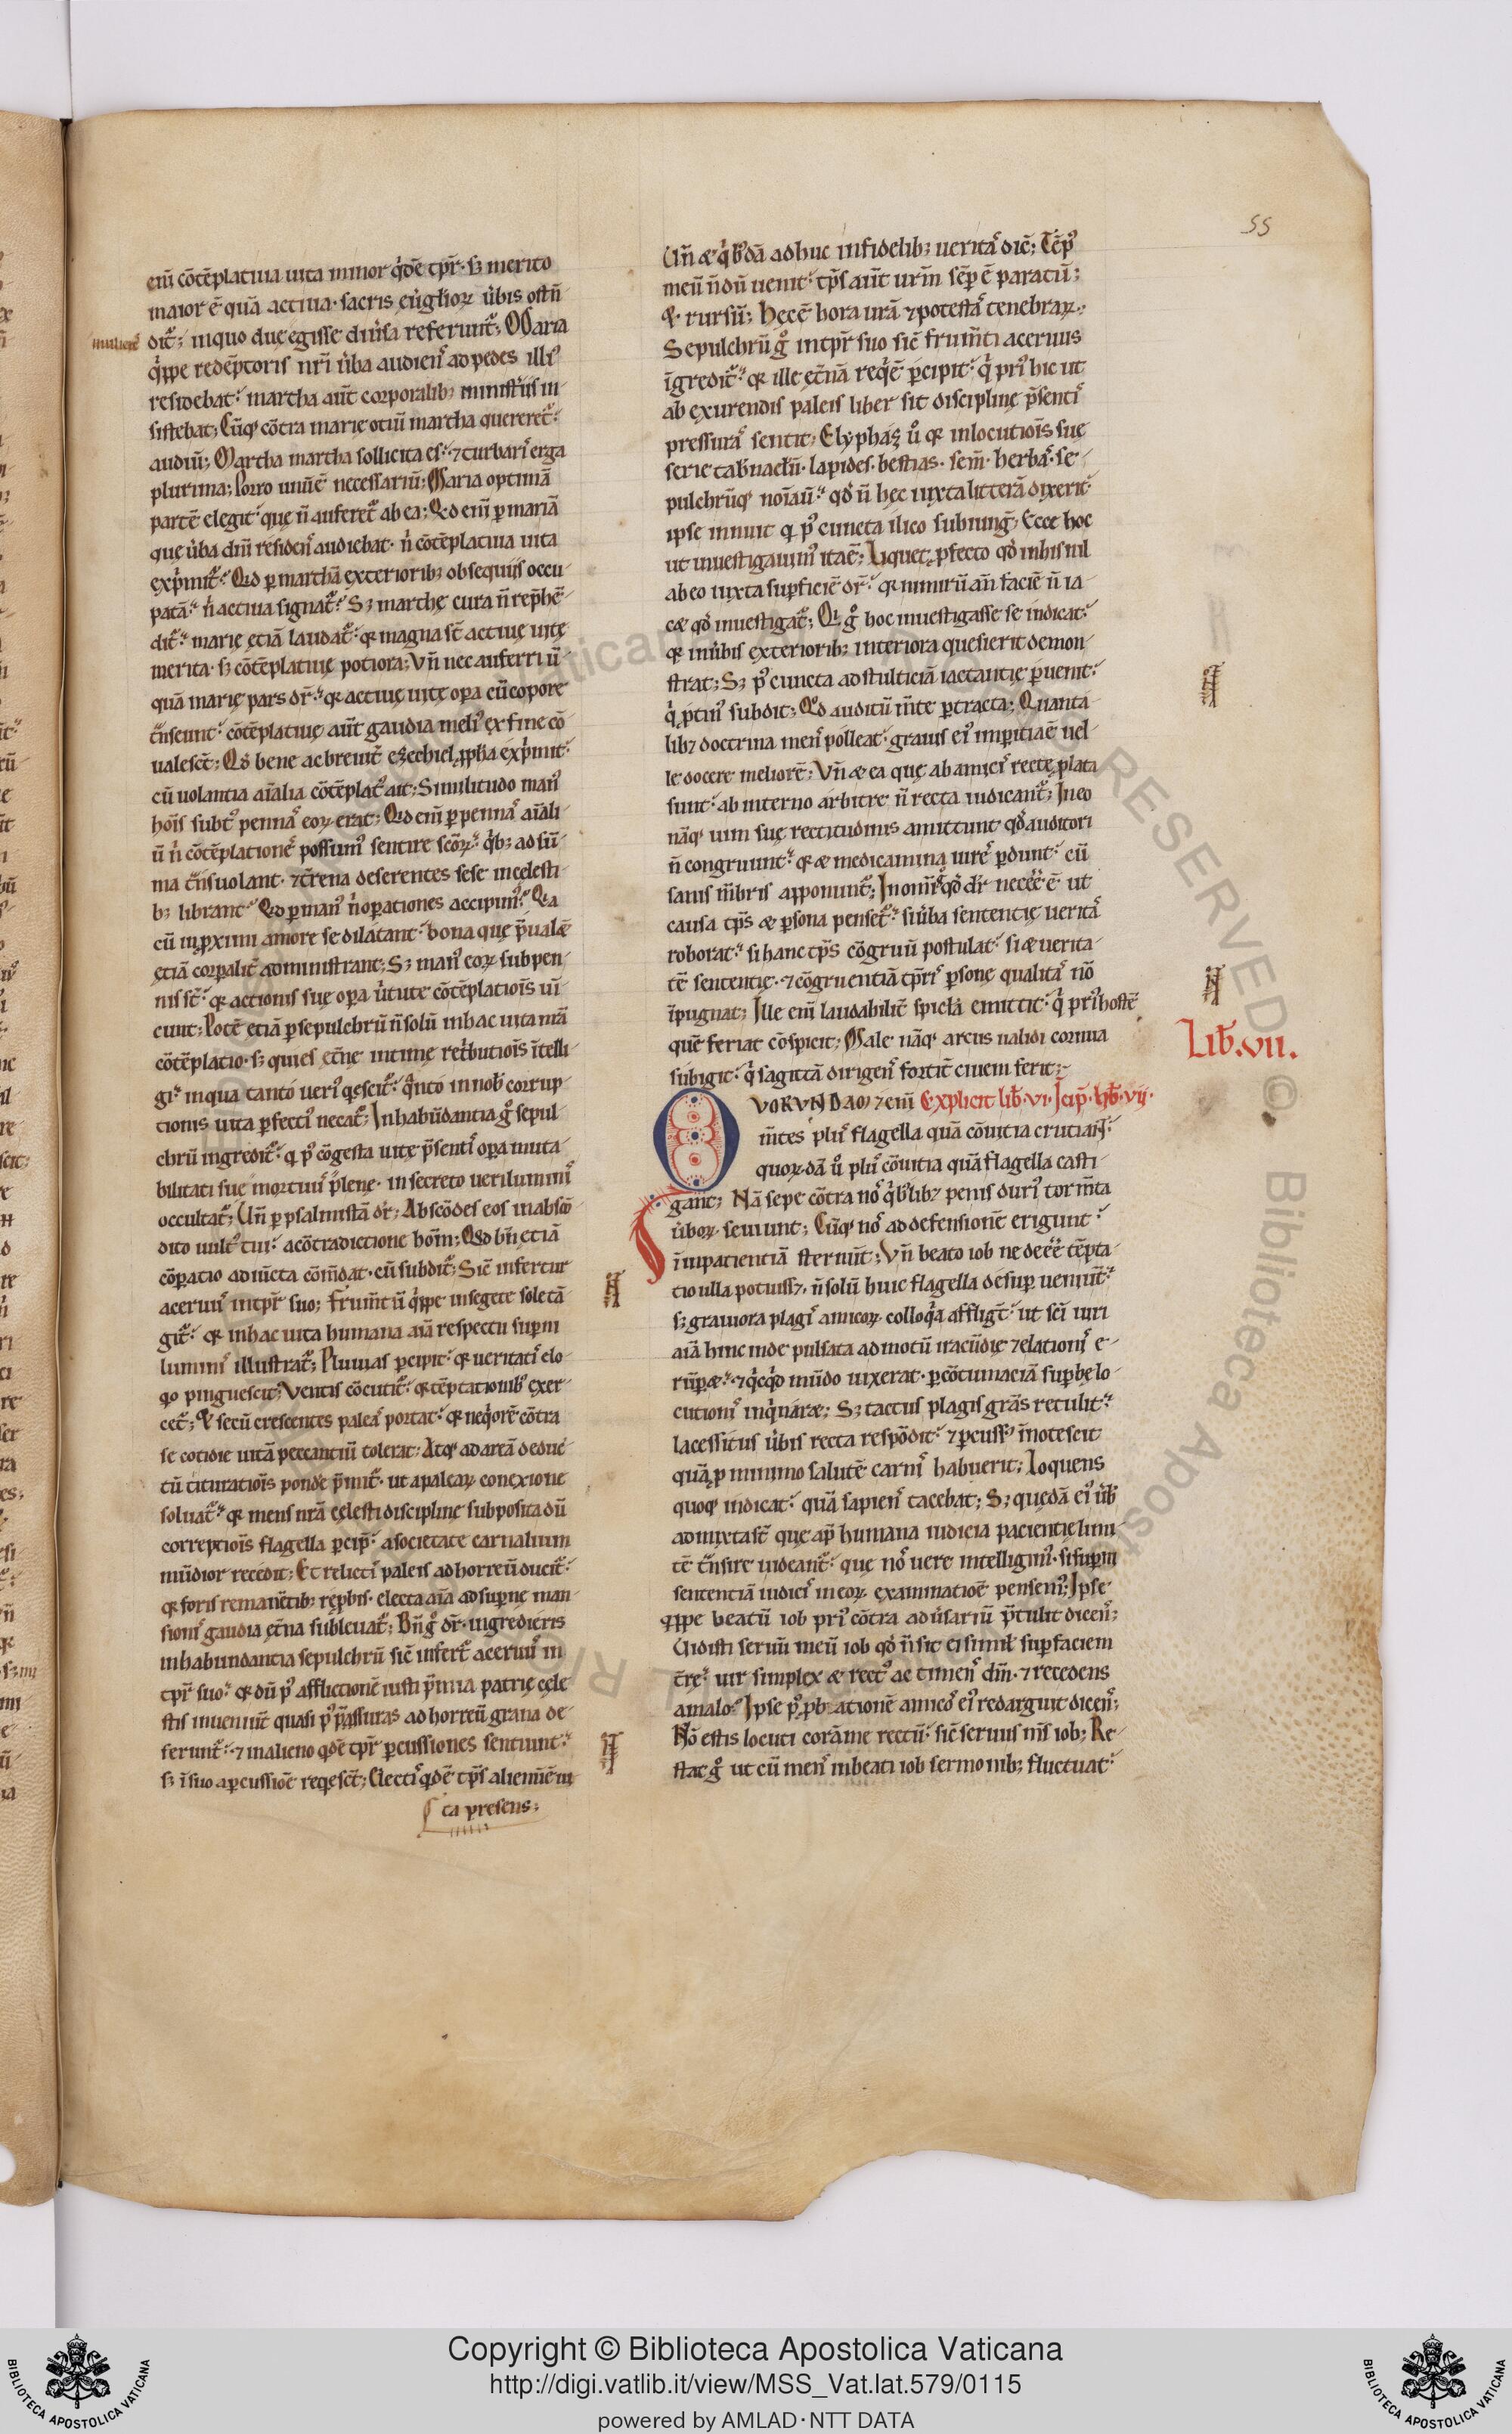 55
eiñ cõtẽplatiua uita minor q̇dẽ tpr̃· sꝫ merito
maior ẽ quã actiua· sacris eũglioꝝ u̇bis ostñ
mulierẽ
dit᷑; inquo due egisse diũsa referunt᷑; Maria
q̇ppe redẽptoris nr̃i u̇ba audienˢ ad pedes illiꝰ
residebat· martha aũt corporalibꝫ ministriis in
sistebat; Cũqꝫ cõtra marię otiũ martha quereret᷑·
audiũ; Martha martha sollicita es· ⁊ turbarˢ erga
plurima; Porro unũ ẽ necessariũ; Maria optimã
partẽ elegit· que ñ auferet᷑ ab ea; Qd eiñ ꝑ mariã
que u̇ba dñi residenˢ audiebat· ñ cõtẽplatiua uita
exp̃mit᷑· Qd ꝑ marthã exterioribꝫ obsequiis occu
patã· ñ actiua signat᷑· Sꝫ marthę cura ñ rep̃hẽ
dit᷑· marię etiã laudat᷑· qꝛ magna sẽt actiuę uitę
merita· sꝫ cõtẽplatiuę potiora; Vñ nec auferri ũ
quã marię pars dr̃· qꝛ actiuę uitę oꝑa cũ copore
t̃nseunt· cõtẽplatiuę aũt gaudia meliꝰ ex fine cõ
ualesct̃; Qd bene ac breuit᷑ ezechiel ꝓpha exp̃mit·
cũ uolantia aĩalia cõtẽplatˢ ait; Similitudo manꝰ
hoĩs subtꝰ pennaˢ eoꝝ erat; Qd eiñ ꝑ pennaˢ aĩali
ũ ñ cõtẽplationeˢ possumꝰ sentire scõꝝ· q̇bꝫ ad sũ
ma t̃nsuolant· ⁊ t̃rena deserentes sese in celesti
bꝫ librant· Qd ꝑ manꝰ ñ oꝑationes accipimꝰ· Qa
cũ in ꝓximi amore se dilatant· bona que p̃ualẽ
etiã corꝑalit᷑ administrant; Sꝫ manꝰ eoꝝ sub pen
nis st̃· qꝛ actionis suę oꝑa u̇tute cõtẽplatiois uĩ
cunt; Potẽ etiã ꝑ sepulchrũ ñ solũ in hac uita nr̃ã
cõtẽplatio· sꝫ quies et̃nę intimę ret̃butiois ĩtelli
giˢ in qua tanto ueriˢ q̇escit᷑· q̃nto in nob̃ corrup
tionis uita ꝑfectiꝰ necat᷑; In habũdantia g̊ sepul
chrũ ingredit᷑· q ꝑꝰ cõgesta uitę p̃sentiˢ oꝑa muta
bilitati suę mortuuˢ p̃lenę· in secreto ueri luminiˢ
occultat᷑; Vñ ꝑ psalmistã dr̃; Abscõdes eos in absco
dito uultˢ tui· a cõtradictione hoĩm; Qd bñ etiã
cõꝑatio adiũcta cõm̃dat· cũ subdit᷑; Sic̃ infertur
aceruuˢ in tpr̃ suo; Frum̃tũ q̇ppe in segete sole tã
git᷑· qꝛ in hac uita humana aĩa respectu suꝑni
luminiˢ illustrat᷑; Pluuias ꝑcipit· qꝛ ueritatiˢ elo
qo pinguescit; Ventis cõcutit᷑· qꝛ tẽptationibˢ exer
cet᷑; Et secũ crescentes paleaˢ portat· qꝛ neq̇orẽ cõtra
se cotidie uitã peccantiũ tolerat; Atqꝫ ad areã deduc
tũ tituratiois ponde p̃mit᷑· ut a paleaꝝ conexione
soluat᷑· qꝛ mens nr̃ã cęlesti disciplinę subposita dũ
correptiois flagella ꝑcip̃· a societate carnalium
mũdior recedit; Et relictiˢ paleis ad horreũ ducit᷑·
qꝛ foris remanẽtibꝫ reꝑbis· electa aĩa ad suꝑnę man
sioniˢ gaudia et̃na subleuat᷑; Bñ g̊ dr̃· ingredieris
in habundantia sepulchrũ sic̃ infert᷑ aceruuˢ in
tpr̃ suo· qꝛ dũ pꝰ afflictionẽ iusti p̃mia patrię cęle
stis inueniũt quasi pꝰ p̃ssuras ad horreũ grana de
ferunt᷑· ⁊ in alieno qdẽ tpr̃ ꝑcussiones sentiunt·
sꝫ ĩ suo a ꝑcussiõe reqescẽt; Electiˢ qdẽ tpˢ alienũ ẽ ui
ta presens;
Vñ æ q̇bꝰdã adhuc infidelibꝫ ueritaˢ dic̃; Tẽpꝰ
meũ ñdũ uenit· tpˢ aũt ur̃m sẽꝑ ẽ paratũ;
Et rursũ; Hec ẽ hora ur̃ã ⁊ potestaˢ tenebraꝝ·
Sepulchrũ g̊ in tpr̃ suo sic̃ frum̃ti aceruus
ĩgredit᷑· qꝛ ille et̃nã req̇ẽ ꝑcipit· q̇ priꝰ hic ut
ab exurendis paleis liber sit disciplinę p̃sentiˢ
pressuraˢ sentit; Elyphaz u̇ qꝛ in locutiois suę
serie tab̃nacłm· lapides· bestias· sem̃· herbaˢ· se
pulchrũqꝫ noĩaũ· qd ñ hec iuxta litterã dixerit·
ipse innuit q pꝰ cuncta ilico subiung̃; Ecce hoc
ut inuestigauimꝰ ita ẽ; Liquet ꝓfecto qd in his nil
ab eo iuxta suꝑficiẽ dr̃· qꝛ nimirũ an̄ faciẽ ñ ia
cæ qd inuestigat᷑; Qi g̊ hoc inuestigasse se indicat·
qꝛ in u̇bis exterioribꝫ interiora quesierit demon
strat; Sꝫ pꝰ cuncta ad stulticiã iactantię ꝑuenit·
q̇ ꝓtinꝰ subdit; Qd auditũ m̃te ꝑtracta; Quanta
libꝫ doctrina menˢ polleat· grauis eiꝰ imꝑitia ẽ uel
le docere meliorẽ; Vñ æ ea que ab amiciˢ recte ꝓlata
sunt· ab interno arbitre ñ recta iudicant᷑; In eo
nãqꝫ uim suę rectitudinis amittunt· qd auditori
ñ congruunt· qꝛ æ medicamina uireˢ ꝑdunt· cũ
sanis m̃bris apponunt᷑; In om̃i g̊ qd dr̃ necẽẽ ẽ ut
causa tpˢ æ ꝑsona penset᷑· si u̇ba sententię ueritaˢ
roborat· si hanc tpˢ cõgruũ postulat· si æ uerita
tẽ sententię· ⁊ cõgruentiã tpr̃iˢ ꝑsonę qualitaˢ nõ
ĩpugnat; Ille eiñ laudabilit᷑ spicła emittit· q̇ priꝰ hostẽ
quẽ feriat cõspicit; Male nãqꝫ arcus ualidi cornua
subigit· q̇ sagittã dirigenˢ fortit᷑ ciuem ferit;
Lib̃.vii.
QVORVNDAM ⁊ eiñ Explicit lib̃· vi· Icip̃· lib̃· vij·
m̃tes plus flagella quã cõuitia cruciant·
quoꝝdã u̇ pluˢ cõuitia quã flagella casti
gant; Nã sepe cõtra noˢ q̇bꝰlibꝫ penis duriꝰ torm̃ta
u̇boꝝ seuiunt; Cũqꝫ noˢ ad defensionẽ erigunt·
ĩ inpatientiã sternũt; Vñ beato iob ne deẽẽ tẽpta
tio ulla potuissꝫ· ñ solũ hunc flagella desuꝑ ueniũt·
sꝫ grauiora plagiˢ amicoꝝ colloq̇a affligt̃· ut sc̃i uiri
aĩa hinc inde pulsata ad motũ iracũdię ⁊ elationiˢ e
rũꝑæ· ⁊ q̇cq̇d mũdo uixerat· ꝑ cõtumaciã suꝑbę lo
cutioniˢ inq̇naræ; Sꝫ tactus plagis grãs retulit·
lacessitus u̇bis recta respõdit· ⁊ ꝑcussˢ ĩnotescit
quã ꝓ minimo salutẽ carniˢ habuerit; Loquens
quoqꝫ indicat· quã sapienˢ tacebat; Sꝫ quedã eiꝰ u̇b̃
adiuxta st̃ que ap̃ humana iudicia pacientię limi
tẽ t̃nsire uideant᷑· que noˢ uere intelligimꝰ· si suꝑni
sententiã iudiciˢ in eoꝝ examinatiõe pensemꝰ; Ipse
qppe beatũ iob priꝰ cõtra adu̇sariũ p̃tulit dicenˢ;
Vidisti seruũ meũ iob qd ñ sit ei simił suꝑ faciem
t̃re· uir simplex æ rectꝰ ac timenˢ dñm· ⁊ recedens
a malo· Ipse pꝰ ꝓbationẽ amicoˢ eiꝰ redarguit dicenˢ;
Nõ estis locuti corã me rectũ· sic̃ seruus m̃s iob; Re
stat g̊ ut cũ menˢ in beati iob sermonibꝫ fluctuat·
Copyright © Biblioteca Apostolica Vaticana
http://digi.vatlib.it/view/MSS_Vat.lat.579/0115
powered by AMLAD·NTT DATA